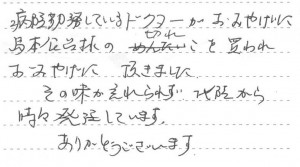 病院勤務しているドクターがおみやげに
島本公司様の切れこを買われ
おみやげに頂きました
その味が忘れられず 地陸から
時々発注しています。
ありがとうございます